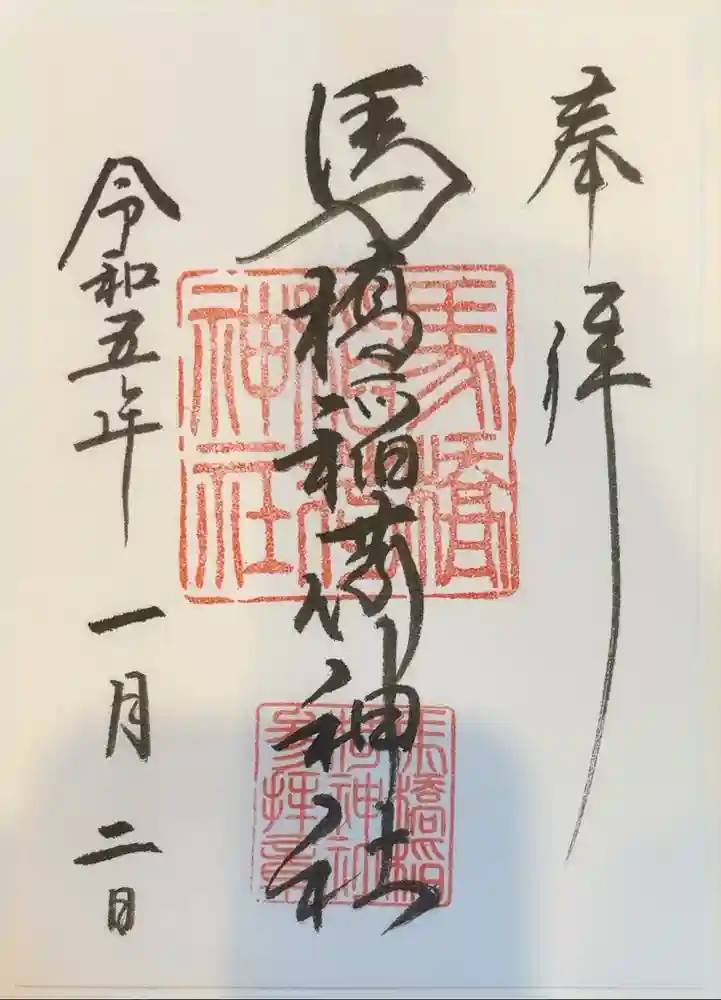 奉拝
馬橋稲荷神社
令和五年 一月 二日
馬橋
稲荷
神社
馬橋稲
荷神社
参拝章